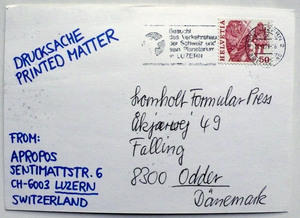 DRUCKSACHE
PRINTED MATTER
Besucht
das Verkehrshaus
der Schweiz und
sein Planetarium
in LUZERN
HELVETIA
50
Kornholt Formular Press
Akjærvej 49
Falling
8300 Odder
Dänemark
FROM:
APROPOS
SENTIMATTSTR. 6
CH-6003 LUZERN
SWITZERLAND